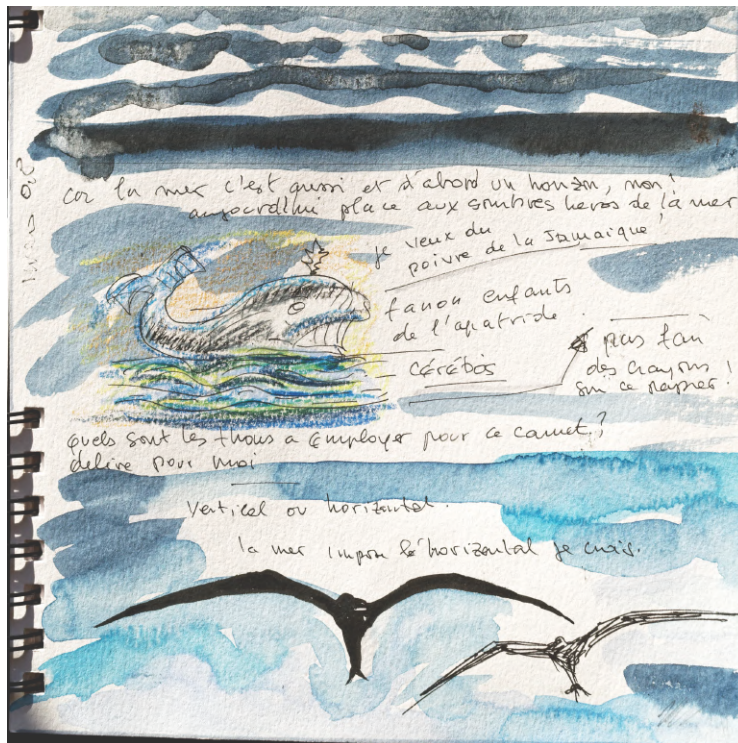 car la mer c'est aussi et d'abord un horizon, non!
aujourd'hui place aux sombres heros de la mer
je veux du
poivre de la Jamaïque,
fanon enfants
de l'apatride
cérébos
pas fan
des crayons
sur ce papier!
quels sont les a employer pour ce carnet?
délire pour moi
vertical ou horizontal.
la mer impose l'horizontal je crois.